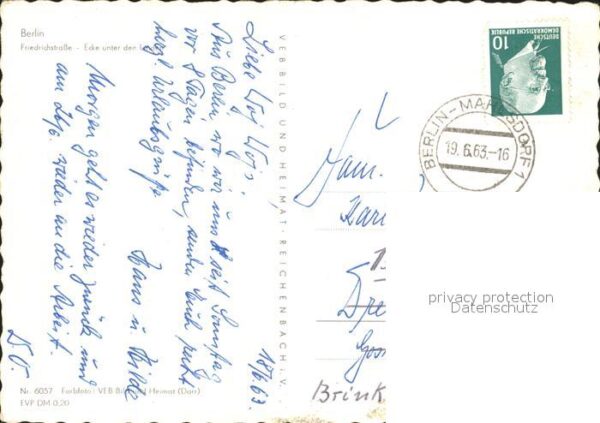 Berlin
Friedrichstraße - Ecke unter den
18/6.63.
Liebe
Aus Berlin wo wir uns seit Samstag
vor 8 Tagen befinden, senden Euch recht
herzl. Urlaubsgrüße
Hans u. Hilde
Morgen geht es wieder zurück und
am 24/6. wieder an die Arbeit.
D.O.
Nr. 6057 Farbfoto: VEB Bild und Heimat (Darr)
EVP DM 0,20
VEB BILD UND HEIMAT · REICHENBACH i. V.
DEUTSCHE
DEMOKRATISCHE REPUBLIK
10
BERLIN-MAHLSDORF 1
19.6.63.-16
Fam.
Kar
Dre
Brink
privacy protection
Datenschutz